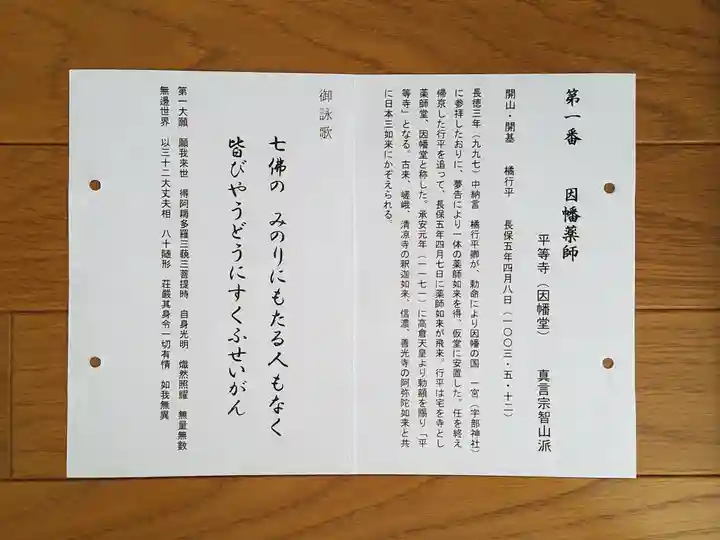 第一番　因幡薬師
平等寺（因幡堂）　真言宗智山派
開山・開基　橘行平　長保五年四月八日（一〇〇三・五・十二）
長徳三年（九九七）中納言　橘行平卿が、勅命により因幡の国　一宮（宇部神社）
に参拝したおりに、夢告により一体の薬師如来を得、仮堂に安置した。任を終え
帰京した行平を追って、長保五年四月七日に薬師如来が飛来。行平は宅を寺とし
薬師堂、因幡堂と称した。承安元年（一一七一）に高倉天皇より勅額を賜り「平
等寺」となる。古来、嵯峨、清凉寺の釈迦如来、信濃、善光寺の阿弥陀如来と共
に日本三如来にかぞえられる。
御詠歌
七佛の　みのりにもたる人もなく
皆びやうどうにすくふせいがん
第一大願　願我来世　得阿耨多羅三藐三菩提時　自身光明　熾然照耀　無量無數
無邊世界　以三十二大丈夫相　八十随形　荘嚴其身令一切有情　如我無異